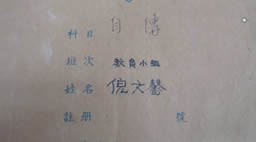 科目 自傳
班次 教育小組
姓名 倪文馨
註册 號